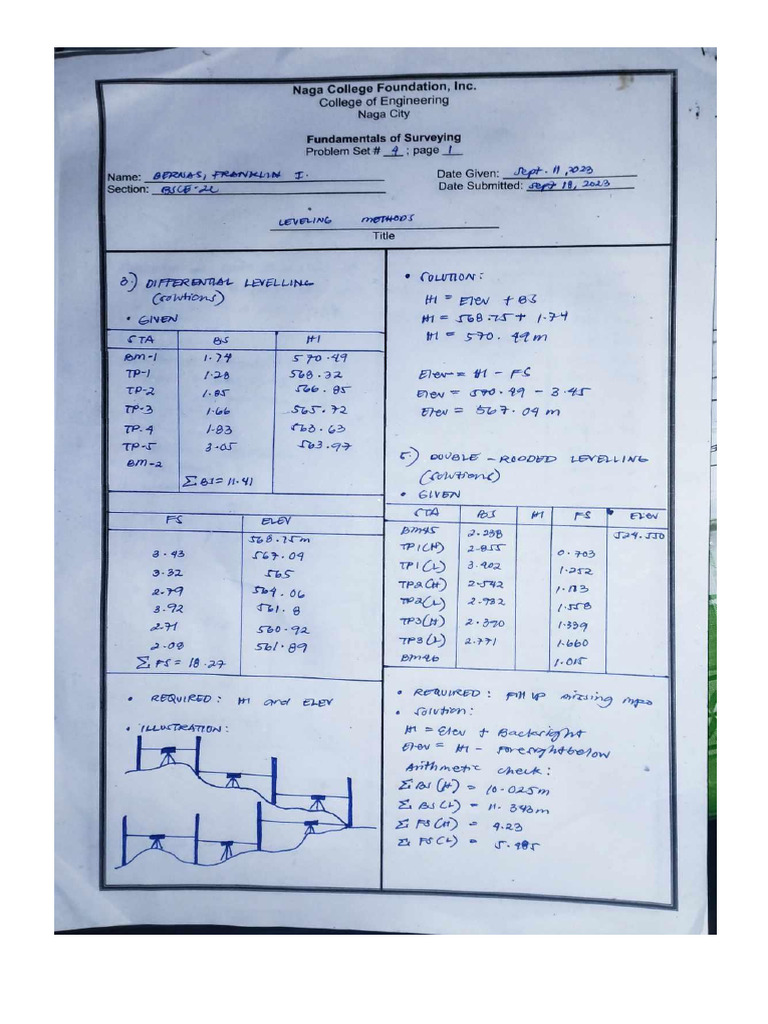 Naga College Foundation, Inc.
College of Engineering
Naga City
Fundamentals of Surveying
Problem Set # 4 ; page 1
Name: BERNAS, FRANKLIN I.
Date Given: Sept. 11, 2023
Section: BSCE-2C
Date Submitted: Sept 18, 2023
LEVELING METHODS
Title
3.) DIFFERENTIAL LEVELLING
(solutions)
• GIVEN
STA BS HI
BM-1 1.74 570.49
TP-1 1.28 568.32
TP-2 1.85 566.85
TP-3 1.66 565.72
TP-4 1.83 563.63
TP-5 3.05 563.97
BM-2
∑BS = 11.41
FS ELEV
568.75m
3.43 567.04
3.32 565
2.79 564.06
3.92 561.8
2.71 560.92
2.08 561.89
∑FS = 18.27
• REQUIRED: HI and ELEV
• ILLUSTRATION:
• SOLUTION:
HI = Elev + BS
HI = 568.75 + 1.74
HI = 570.49m
Elev = HI - FS
Elev = 570.49 - 3.45
Elev = 567.04 m
5.) DOUBLE-RODDED LEVELLING
(solutions)
• GIVEN
STA BS HI FS ELEV
BM45 2.238 524.550
TP1(H) 2.855 0.703
TP1(L) 3.402 1.252
TP2(H) 2.542 1.183
TP2(L) 2.932 1.558
TP3(H) 2.390 1.339
TP3(L) 2.771 1.660
BM46 1.015
• REQUIRED: Fill up missing
• Solution:
HI = Elev + Backsight
Elev = HI - Foresight below
Arithmetic check:
∑BS(H) = 10.025m
∑BS(L) = 11.343m
∑FS(H) = 4.23
∑FS(L) = 5.485